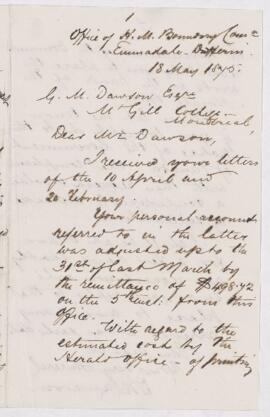 1
Office of H. M. Boundary Com.
Dufferin
18 May 1875.
G. M. Dawson Esqre
McGill College
Montreal
Dear Mr Dawson,
I received your letters
of the 10 April and
20 February.
Your personal account
referred to in the latter
was adjusted up to the
31st of last March by
the remittance of $498.42
on the 5th from this
office.
With regard to the
estimated cost by the
Herald Office - of printing